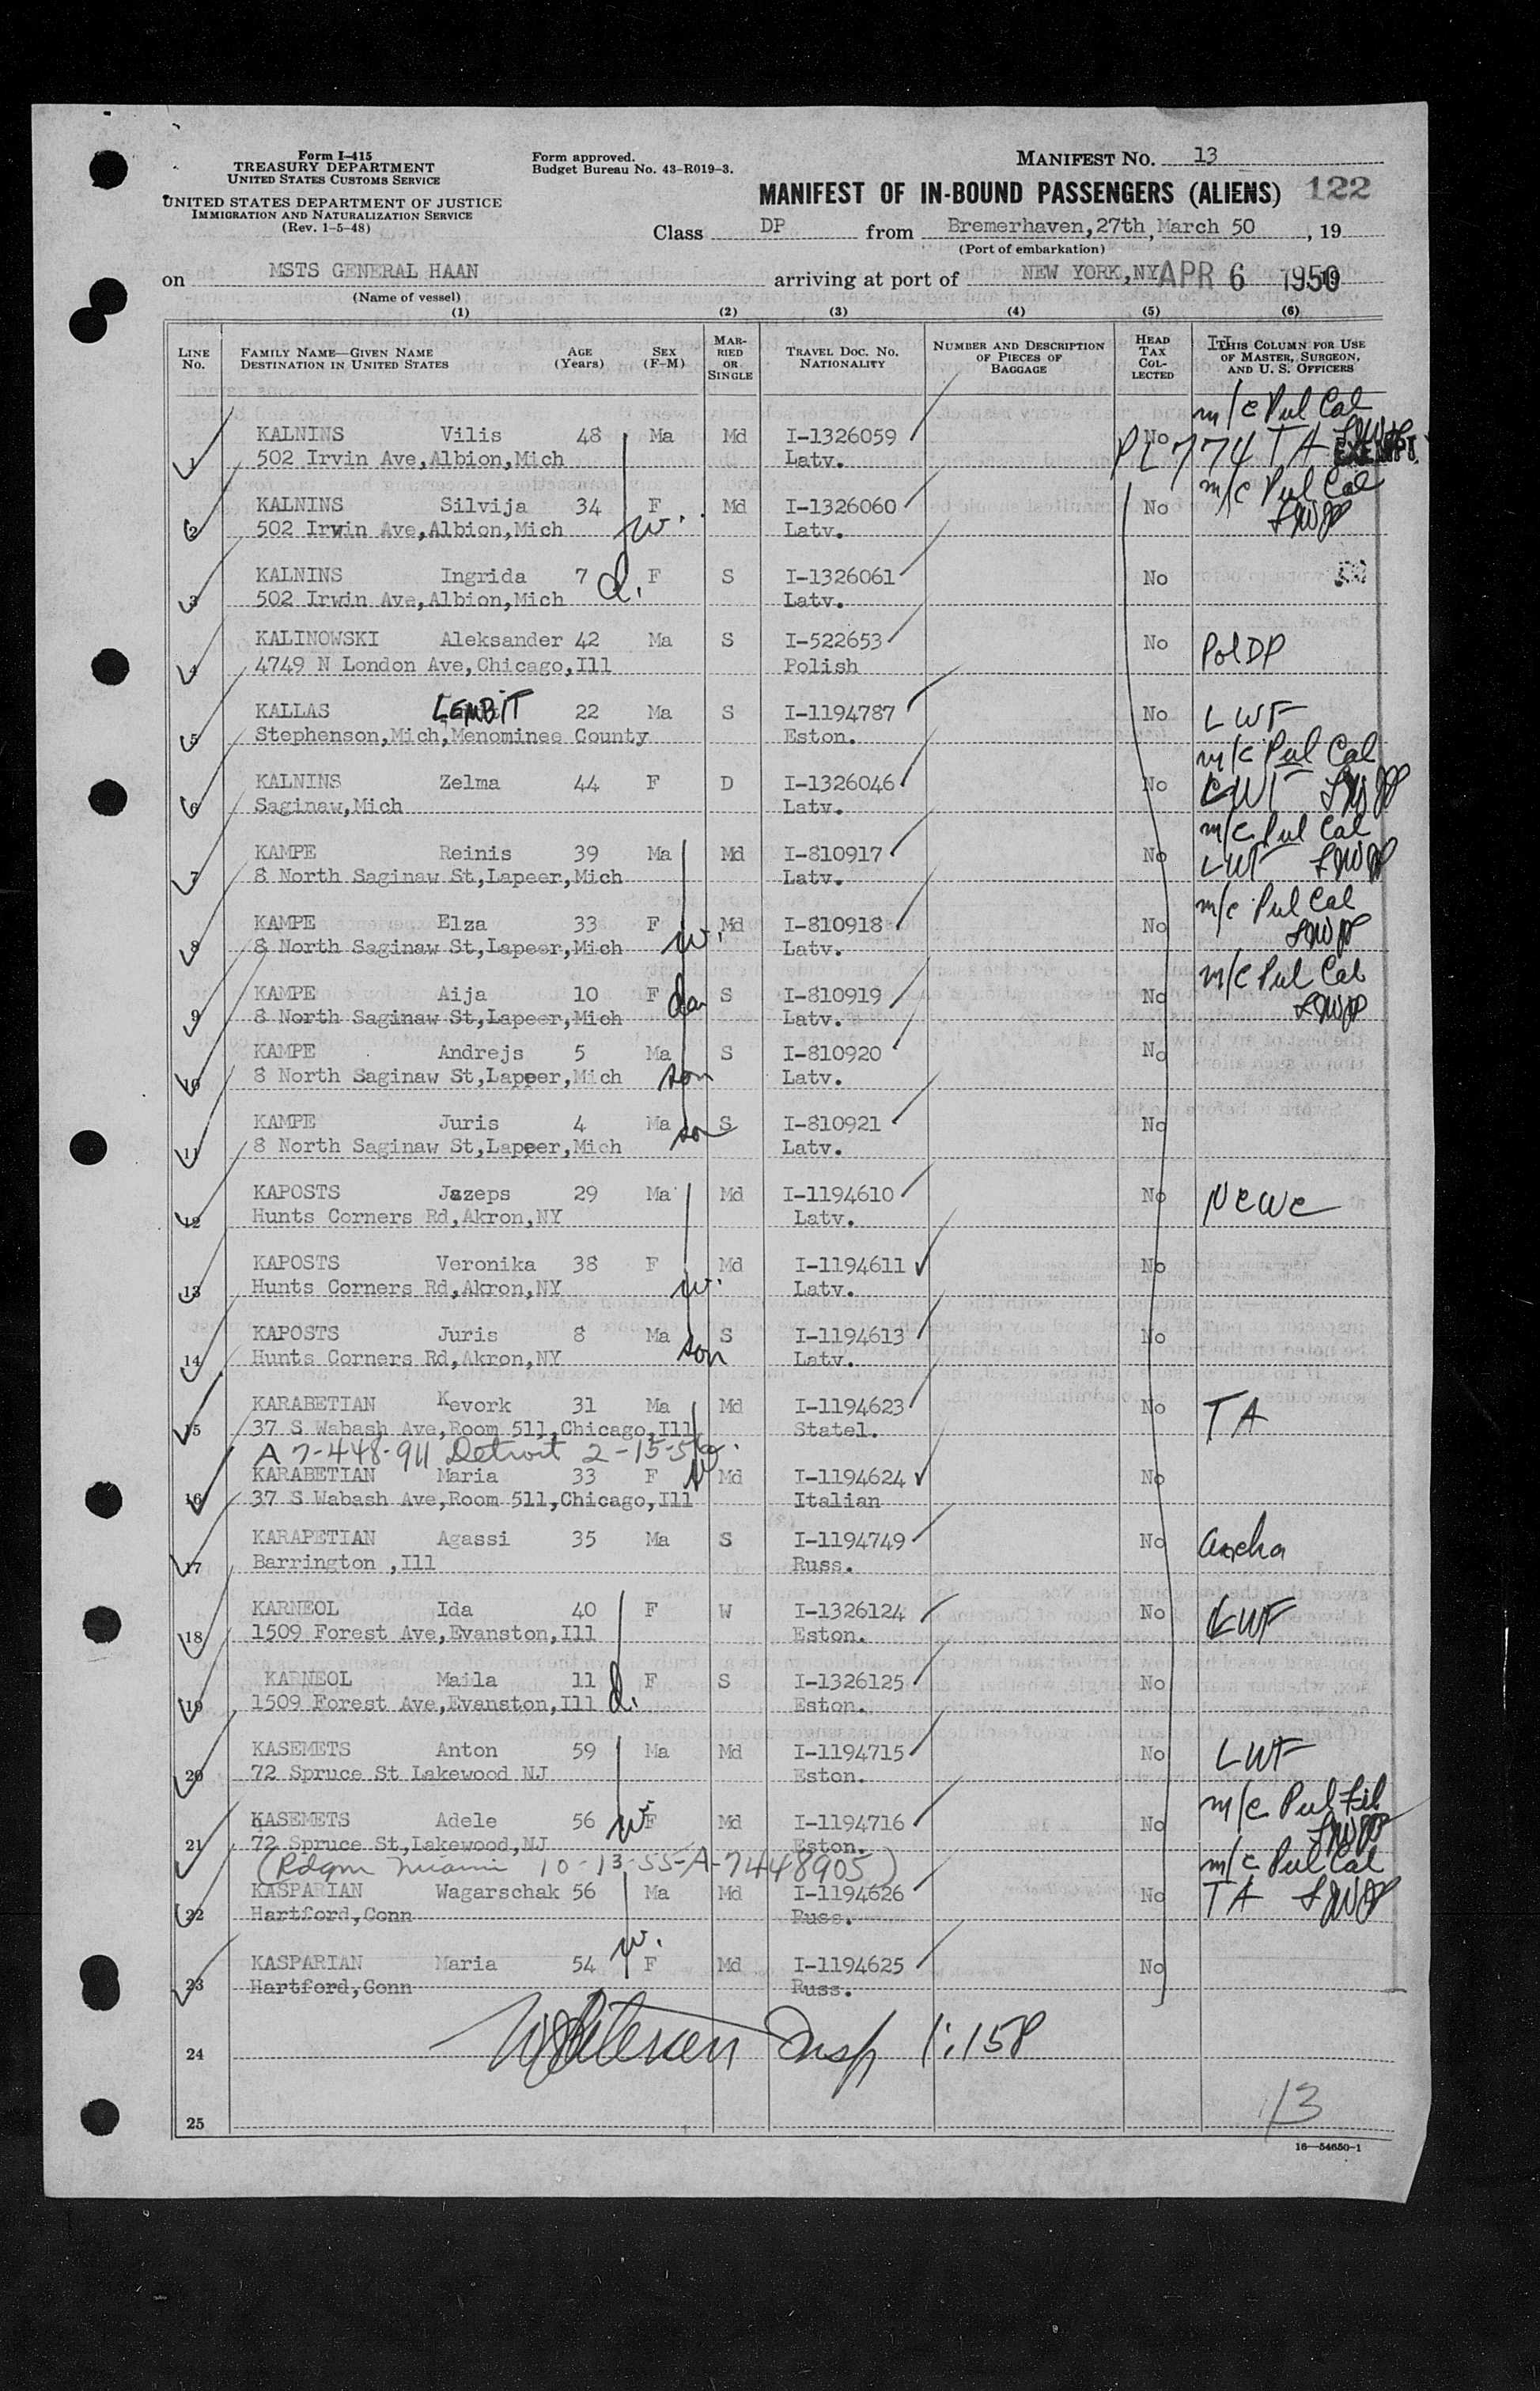 Form I-415
TREASURY DEPARTMENT
UNITED STATES CUSTOMS SERVICE
UNITED STATES DEPARTMENT OF JUSTICE
IMMIGRATION AND NATURALIZATION SERVICE
(Rev. 1-5-48)
Form approved.
Budget Bureau No. 43-R019-3.
MANIFEST NO. 13
MANIFEST OF IN-BOUND PASSENGERS (ALIENS) 122
Class DP from Bremerhaven,27th,March 50, 19
(Port of embarkation)
on MSTS GENERAL HAAN arriving at port of NEW YORK,NY APR 6 1950
(Name of vessel)
(1) (2) (3) (4) (5) (6)
LINE NO. FAMILY NAME—GIVEN NAME DESTINATION IN UNITED STATES AGE (Years) SEX (F-M) MARRIED OR SINGLE TRAVEL DOC. NO. NATIONALITY NUMBER AND DESCRIPTION OF PIECES OF BAGGAGE HEAD TAX COLLECTED THIS COLUMN FOR USE OF MASTER, SURGEON, AND U. S. OFFICERS
m/c Pul Cal
1 KALNINS Vilis 48 Ma Md I-1326059 No PL 774 TA
502 Irvin Ave,Albion,Mich Latv.
m/c Pul Cal
2 KALNINS Silvija 34 F w. Md I-1326060 No
502 Irwin Ave,Albion,Mich Latv.
3 KALNINS Ingrida 7 d. F S I-1326061 No
502 Irwin Ave,Albion,Mich Latv.
4 KALINOWSKI Aleksander 42 Ma S I-522653 No Pol DP
4749 N London Ave,Chicago,Ill Polish
5 KALLAS LEMBIT 22 Ma S I-1194787 No LWF
Stephenson,Mich,Menominee County Eston.
m/c Pul Cal
6 KALNINS Zelma 44 F D I-1326046 No LWF
Saginaw,Mich Latv.
m/c Pul Cal
7 KAMPE Reinis 39 Ma Md I-810917 No LWF
8 North Saginaw St,Lapeer,Mich Latv.
m/c Pul Cal
8 KAMPE Elza 33 F w. Md I-810918 No
8 North Saginaw St,Lapeer,Mich Latv.
m/c Pul Cal
9 KAMPE Aija 10 F da S I-810919 No
8 North Saginaw St,Lapeer,Mich Latv.
10 KAMPE Andrejs 5 Ma son S I-810920 No
8 North Saginaw St,Lapeer,Mich Latv.
11 KAMPE Juris 4 Ma son S I-810921 No
8 North Saginaw St,Lapeer,Mich Latv.
12 KAPOSTS Jazeps 29 Ma Md I-1194610 No NCWC
Hunts Corners Rd,Akron,NY Latv.
13 KAPOSTS Veronika 38 F w. Md I-1194611 No
Hunts Corners Rd,Akron,NY Latv.
14 KAPOSTS Juris 8 Ma son S I-1194613 No
Hunts Corners Rd,Akron,NY Latv.
15 KARABETIAN Kevork 31 Ma Md I-1194623 No TA
37 S Wabash Ave,Room 511,Chicago,Ill Statel.
A 7-448-911 Detroit 2-15-56.
16 KARABETIAN Maria 33 F w Md I-1194624 No
37 S Wabash Ave,Room 511,Chicago,Ill Italian
17 KARAPETIAN Agassi 35 Ma S I-1194749 No Ancha
Barrington ,Ill Russ.
18 KARNEOL Ida 40 F W I-1326124 No LWF
1509 Forest Ave,Evanston,Ill Eston.
19 KARNEOL Maila 11 d. F S I-1326125 No
1509 Forest Ave,Evanston,Ill Eston.
20 KASEMETS Anton 59 Ma Md I-1194715 No LWF
72 Spruce St Lakewood NJ Eston.
m/c Pul Fib
21 KASEMETS Adele 56 w F Md I-1194716 No
72 Spruce St,Lakewood,NJ Eston.
(Rdqm Miami 10-13-55-A-7448905)
m/c Pul Cal
22 KASPARIAN Wagarschak 56 Ma Md I-1194626 No TA
Hartford,Conn Russ.
23 KASPARIAN Maria 54 w. F Md I-1194625 No
Hartford,Conn Russ.
24 Insp 1:15P
25 13
16—54650-1